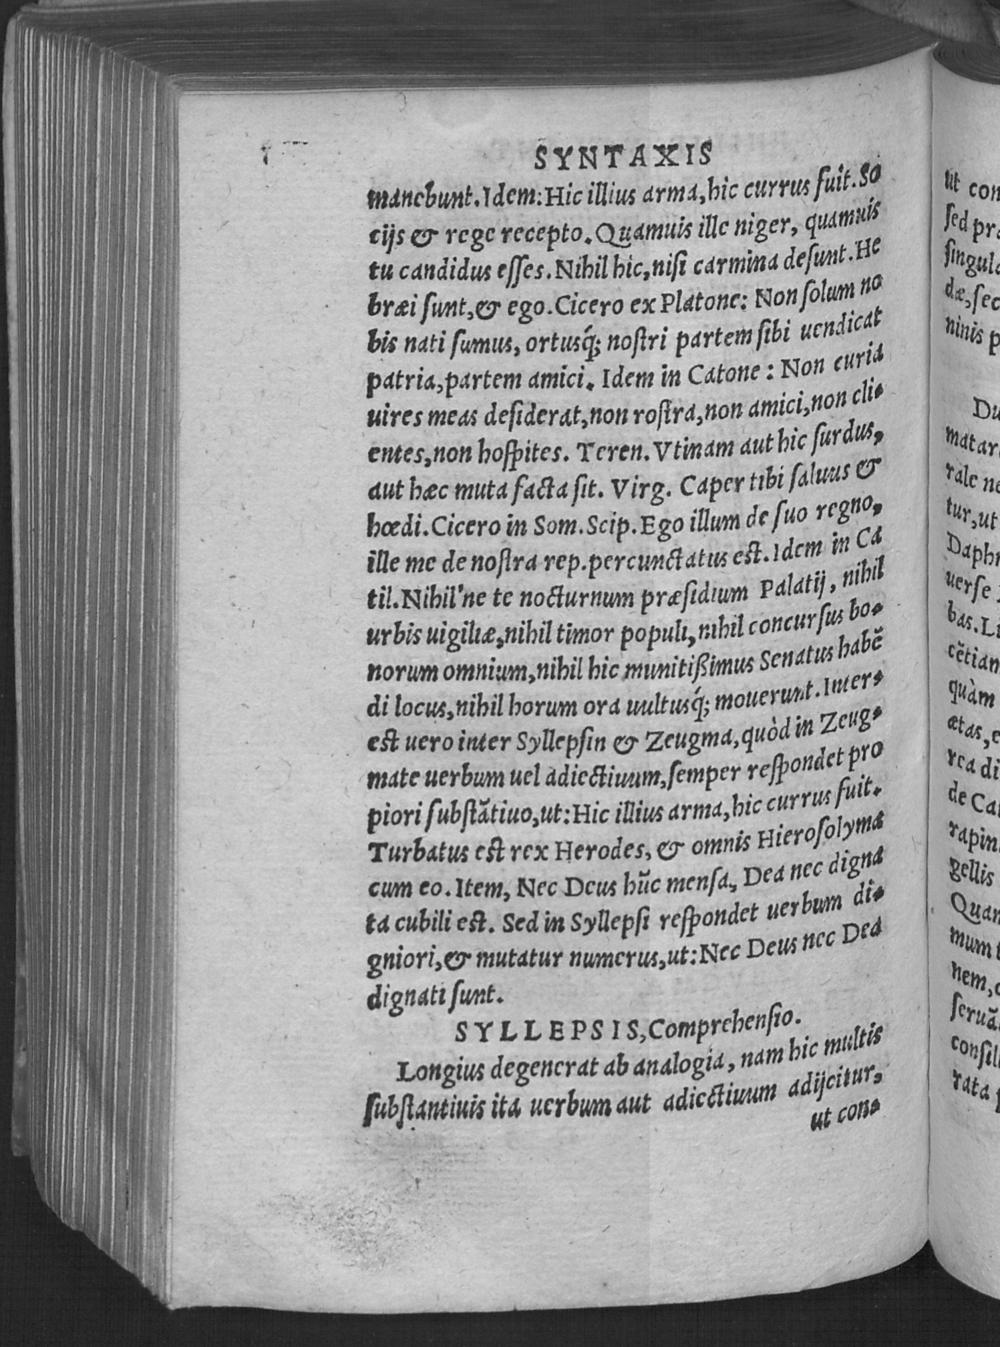 SYNTAXIS
manebunt. Idem: Hic illius arma, hic currus fuit. So
cijs & rege recepto. Quamuis ille niger, quamuis
tu candidus esses. Nihil hic, nisi carmina desunt. He
bræi sunt, & ego. Cicero ex Platone: Non solum no
bis nati sumus, ortusq́; nostri partem sibi uendicat
patria, partem amici. Idem in Catone: Non curia
uires meas desiderat, non rostra, non amici, non cli-
entes, non hospites. Teren. Vtinam aut hic surdus,
aut hæc muta facta sit. Virg. Caper tibi saluus &
hœdi. Cicero in Som. Scip. Ego illum de suo regno,
ille me de nostra rep. percunctatus est. Idem in Ca
til. Nihil'ne te nocturnum præsidium Palatij, nihil
urbis uigiliæ, nihil timor populi, nihil concursus bo-
norum omnium, nihil hic munitißimus Senatus habẽ
di locus, nihil horum ora uultusq́; mouerunt. Inter-
est uero inter Syllepsin & Zeugma, quòd in Zeug-
mate uerbum uel adiectiuum, semper respondet pro
piori substãtiuo, ut: Hic illius arma, hic currus fuit.
Turbatus est rex Herodes, & omnis Hierosolyma
cum eo. Item, Nec Deus hũc mensa, Dea nec digna
ta cubili est. Sed in Syllepsi respondet uerbum di-
gniori, & mutatur numerus, ut: Nec Deus nec Dea
dignati sunt.
SYLLEPSIS, Comprehensio.
Longius degenerat ab analogia, nam hic multis
substantiuis ita uerbum aut adiectiuum adijcitur,
ut con-
ut con
sed pr
singula
dæ, sec
ninis p
Du
matar
rale ne
tur, ut
Daphn
uerse
bas. Li
cẽtian
quàm
ætas, e
rea di
de Ca
rapin
gellis
Quan
mum
nem,
seruã
consil
rata